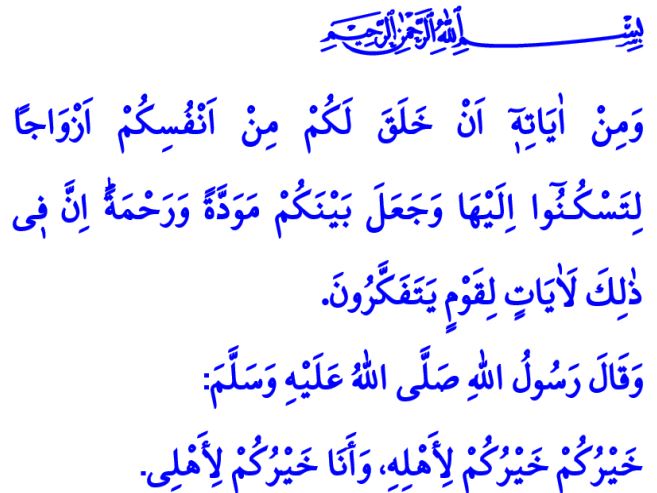 بِسْمِ اللهِ الرَّحْمٰنِ الرَّحِيمِ
وَمِنْ اٰيَاتِه۪ٓ اَنْ خَلَقَ لَكُمْ مِنْ اَنْفُسِكُمْ اَزْوَاجًا
لِتَسْكُنُٓوا اِلَيْهَا وَجَعَلَ بَيْنَكُمْ مَوَدَّةً وَرَحْمَةًۜ اِنَّ ف۪ى
ذٰلِكَ لَاٰيَاتٍ لِقَوْمٍ يَتَفَكَّرُونَ.
وَقَالَ رَسُولُ اللهِ صَلَّى اللهُ عَلَيْهِ وَسَلَّمَ:
خَيْرُكُمْ خَيْرُكُمْ لِأَهْلِهِ، وَأَنَا خَيْرُكُمْ لِأَهْلِى.